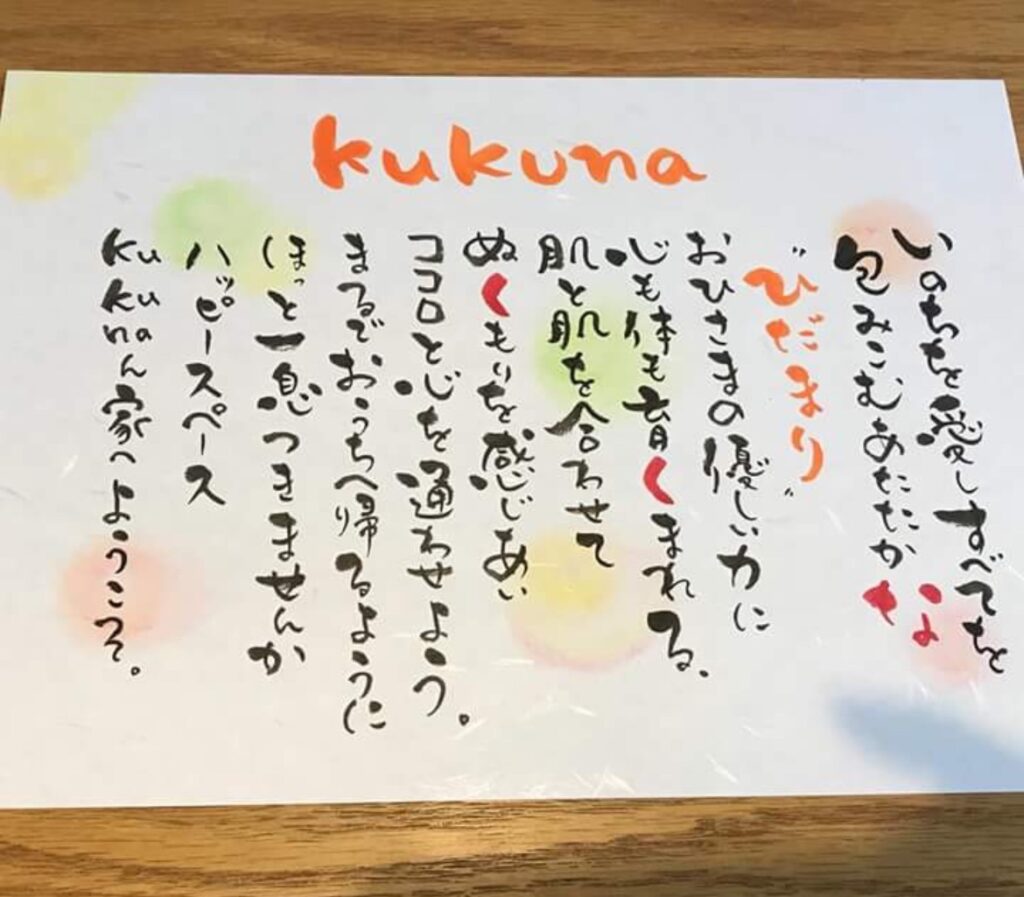 kukuna
いのちを愛しすべてを
包みこむあたたかな
"ひだまり"
おひさまの優しい力に
心も体も育くまれる、
肌と肌を合わせて
ぬくもりを感じあい
ココロと心を通わせよう。
まるでおうちへ帰るように
ほっと一息つきませんか
ハッピースペース
kukunaん家へようこそ。